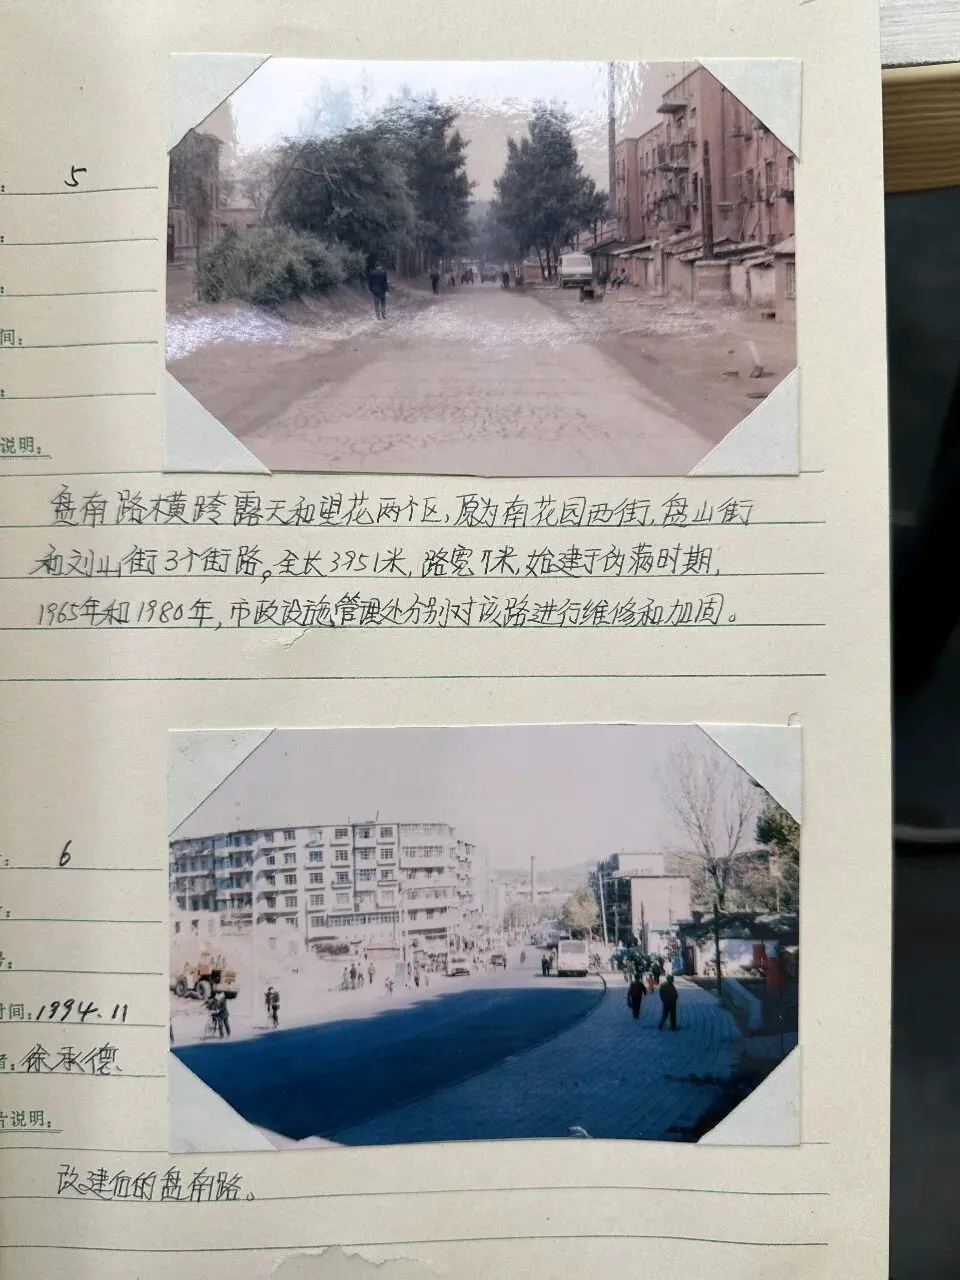 5
间:
说明:
盘南路横跨露天和望花两个区,原为南花园西街,盘山街
和刘山街3个街路。全长3951米,路宽7米,始建于伪满时期,
1965年和1980年,市政设施管理处分别对该路进行维修和加固。
6
号:
时间:1994.11
者:徐承德
片说明:
改建后的盘南路。